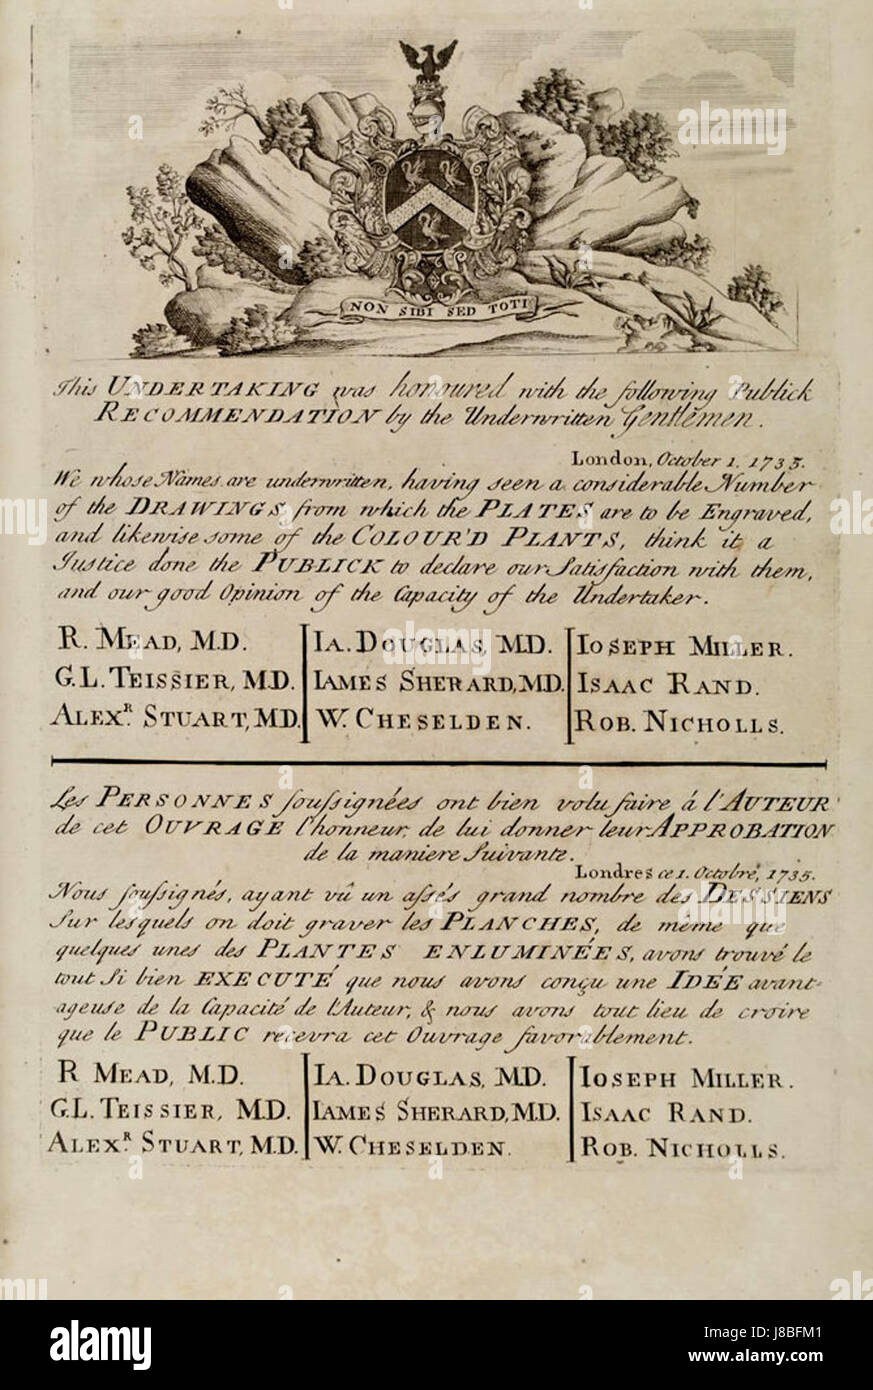 NON SIBI SED TOTI
This UNDERTAKING was honoured with the following Publick
RECOMMENDATION by the Underwritten Gentlemen.
London, October 1. 1735.
We whose Names are underwritten, having seen a considerable Number
of the DRAWINGS from which the PLATES are to be Engraved,
and likewise some of the COLOUR'D PLANTS, think it a
Justice done the PUBLICK to declare our Satisfaction with them,
and our good Opinion of the Capacity of the Undertaker.
R. MEAD, M.D. IA. DOUGLAS, M.D. IOSEPH MILLER.
G.L. TEISSIER, M.D. IAMES SHERARD, M.D. ISAAC RAND.
ALEXR. STUART, M.D. W. CHESELDEN. ROB. NICHOLLS.
Les PERSONNES soussignées ont bien volu faire á l'AUTEUR
de cet OUVRAGE l'honneur, de lui donner leur APPROBATION
de la maniere Suivante.
Londres ce 1. Octobre, 1735.
Nous soussignés, ayant vû un assés grand nombre des DESSIENS
Sur lesquels on doit graver les PLANCHES, de même que
quelques unes des PLANTES ENLUMINÉES, avons trouvé le
tout Si bien EXECUTÉ que nous avons conçu une IDÉE avant-
ageuse de la Capacité de l'Auteur, & nous avons tout lieu de croire
que le PUBLIC recevra cet Ouvrage favorablement.
R MEAD, M.D. IA. DOUGLAS, M.D. IOSEPH MILLER.
G.L. TEISSIER, M.D. IAMES SHERARD, M.D. ISAAC RAND.
ALEXR. STUART, M.D. W. CHESELDEN. ROB. NICHOLLS.
alamy
Image ID: J8BFM1
www.alamy.com